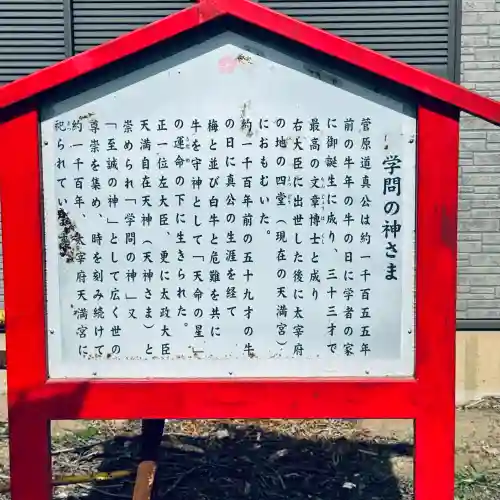 学問の神さま
菅原道真公は約一千百五五年
前の牛年の牛の日に学者の家
に御誕生に成り、三十三才で
最高の文章博士と成り
右大臣に出世した後に太宰府
の地の四堂(現在の天満宮)
におもむいた。
約一千百年前の五十九才の牛
の日に真公の生涯を経て
梅と並び白牛と危難を共に
牛を守神として「天命の星」
の運命の下に生きられた。
正一位左大臣、更に太政大臣
天満自在天神(天神さま)と
崇められ「学問の神」又
「至誠の神」として広く世の
尊崇を集め、時を刻み続けて
約一千百年、太宰府天満宮に
祀られてい